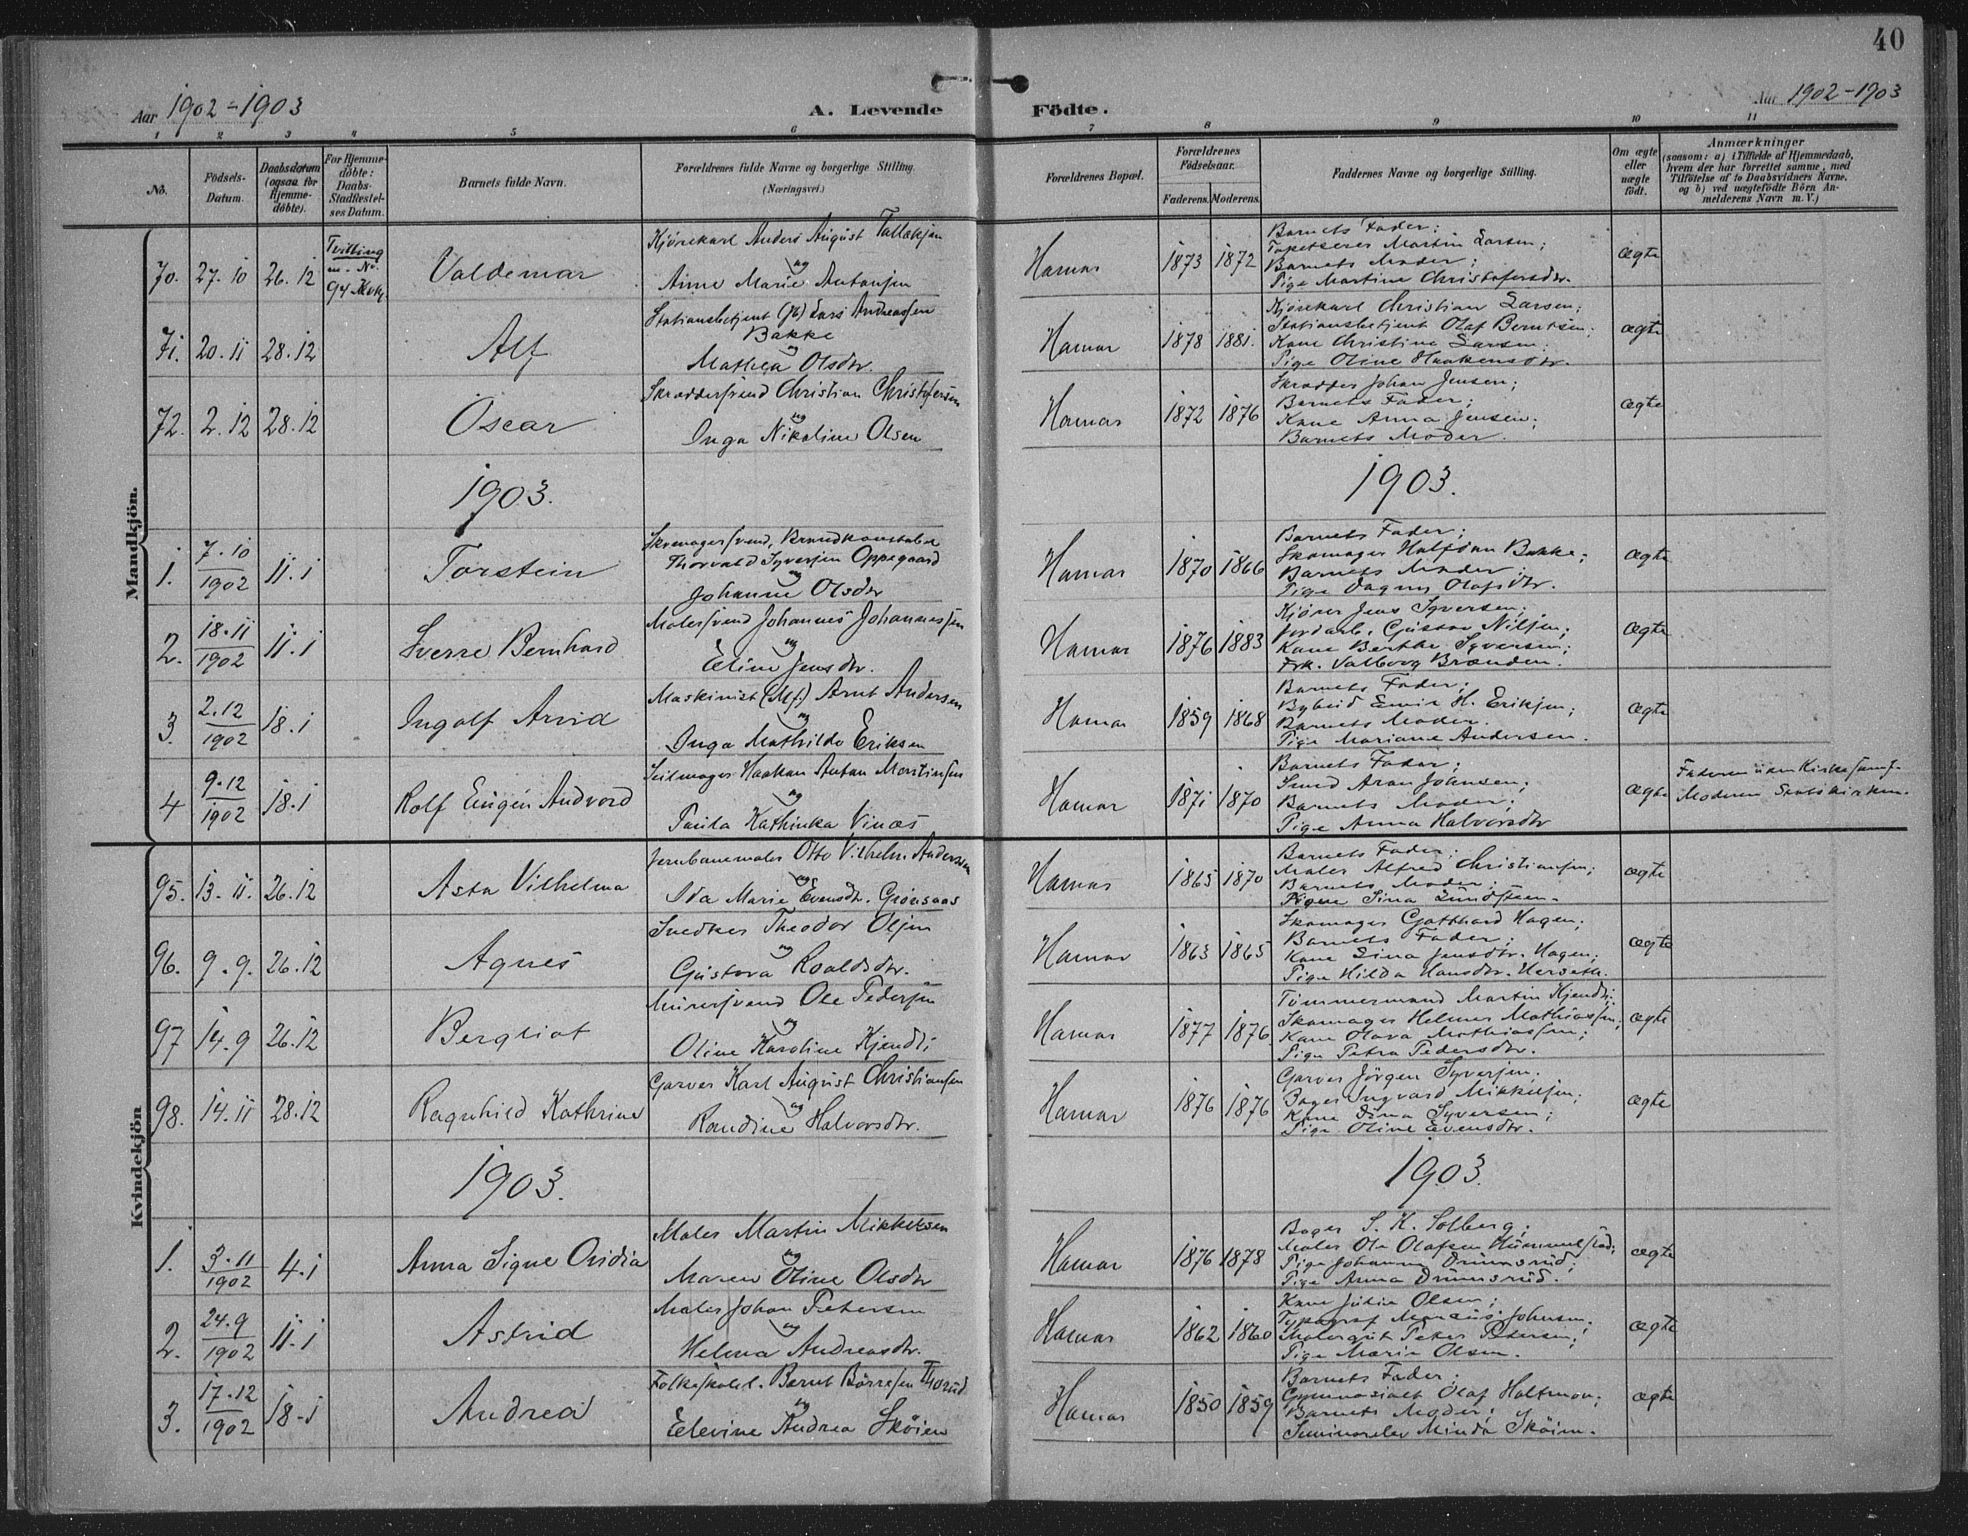 40
Aar 1902-1903
A. Levende
Födte.
Aar 1902-1903
1 2 3 4 5 6 7 8 9 10 11
No.
Födsels-
Datum.
Daabsdatum
(ogsaa for
Hjemme-
döbte).
For Hjemme-
döbte:
Daabs-
Stadfæstel-
ses Datum.
Barnets fulde Navn.
Forældrenes fulde Navne og borgerlige Stilling.
(Næringsvei.)
Forældrenes Bopæl.
Forældrenes
Födselsaar.
Faderens. Moderens.
Faddernes Navne og borgerlige Stilling.
Om ægte
eller
uægte
födt.
Anmærkninger
(saasom: a) i Tilfælde af Hjemmedaab,
hvem der har forrettet samme, med
Tilföielse af to Daabsvidners Navne,
og b) ved uægtefödte Börn An-
melderens Navn m. V.)
Mandkjön.
70. 27.10 26.12
Tvilling
m. No.
94 Kvk.
Valdemar
Kjørekarl Anders August Tallaksen
og
Anne Marie Antonsen
Hamar 1873 1872
Barnets Fader;
Tapetserer Martin Larsen;
Barnets Moder;
Pige Martine Christofersdtr.
ægte
71. 20.11 28.12
Alf
Stationsbetjent (Jb) Lars Andreassen
Bakke
og
Mathea Olsdtr.
Hamar 1878 1881.
Kjørekarl Christian Larsen;
Stationsbetjent Olaf Berntsen;
Kone Christine Larsen;
Pige Oline Haakensdtr.
ægte
72. 2.12 28.12
Oscar
Skræddersvend Christian Christofersen
og
Inga Nikoline Olsen
Hamar 1872 1876
Skrædder Johan Jensen;
Barnets Fader;
Kone Anna Jensen;
Barnets Moder.
ægte
1903.
1903.
1. 7.10/1902 11.1
Torstein
Skomagersvend, Brandkonstabel
Thorvald Syversen Oppegaard
og
Johanne Olsdtr
Hamar 1870 1866
Barnets Fader;
Skomager Halfdan Bakke;
Barnets Moder;
Pige Dagny Olafsdtr.
ægte
2. 18.11/1902 11.1
Sverre Bernhard
Malersvend Johannes Johannessen
og
Eline Jensdtr.
Hamar 1876 1883
Kjører Jens Syversen;
Jordarb. Gustav Nilsen;
Kone Berthe Syversen;
Frk. Valborg Brænden.
ægte
3. 2.12/1902 18.1
Ingolf Arvid
Maskinist (Mf.) Arnt Andersen
og
Inga Mathilde Eriksen
Hamar 1859 1868
Barnets Fader;
Bybud Emil H. Eriksen;
Barnets Moder.
Pige Mariane Andersen.
ægte
4 9.12/1902 18.1
Rolf Eugén Andvord
Seilmager Haakon Anton Mortinsen
og
Paula Kathinka Vinæs
Hamar 1871 1870
Barnets Fader;
Smed Aron Johnsen;
Barnets Moder;
Pige Anna Halvorsdtr
ægte
Faderen u den Kirkesamf.
Moderen Statskirken.
Kvindekjön
95. 13.11. 26.12
Asta Vilhelma
Jernbanemaler Otto Vilhelm Anderssen
og
Ida Marie Evensdtr. Grønsaas
Hamar 1865 1870
Barnets Fader;
Maler Alfred Christiansen;
Barnets Moder;
Pigen Sina Lundsteen.
ægte
96. 9.9. 26.12
Agnes
Snedker Theodor Olsen
og
Gustava Roaldsdtr.
Hamar 1863 1865
Skomager Gotthard Hagen;
Barnets Fader;
Kone Lina Jensdtr. Hagen;
Pige Hilda Hansdtr. Herseth.
ægte
97 14.9 26.12
Bergliot
Murersvend Ole Pedersen
og
Oline Karoline Kjendli
Hamar 1877 1876
Tømmermand Martin Kjendli;
Skomager Helmer Mathiassen;
Kone Olava Mathiassen;
Pige Petra Pedersdtr.
ægte
98. 14.11 28.12
Ragnhild Kathrine
Garver Karl August Christiansen
og
Randine Halvorsdtr.
Hamar 1876 1876
Garver Jörgen Syversen;
Bager Ingvard Mikkelsen;
Kone Dina Syversen;
Pige Oline Evensdtr.
ægte
1903.
1903.
1. 3.11/1902 4.1
Anna Signe Ovidia
Maler Martin Mikkelsen
og
Maren Oline Olsdtr
Hamar 1876 1878
Bager S. K. Solberg;
Maler Ole Olafsen Hummelstad;
Pige Johanne Drumsrud;
Pige Anna Drumsrud.
ægte
2. 24.9/1902 11.1
Astrid
Maler Johan Petersen
og
Helma Andreasdtr.
Hamar 1862 1860
Kone Julie Olsen;
Typograf Marcus Johnsen.
Malergut Peter Petersen;
Pige Marie Olsen.
ægte
3. 17.12/1902 18.1
Andrea
Folkeskolel. Bernt Børresen Thorud
og
Elevine Andrea Skøien
Hamar 1850 1859
Barnets Fader;
Gymnasiast Olaf Holtmon;
Barnets Moder;
Seminarelev Minda Skøien.
ægte